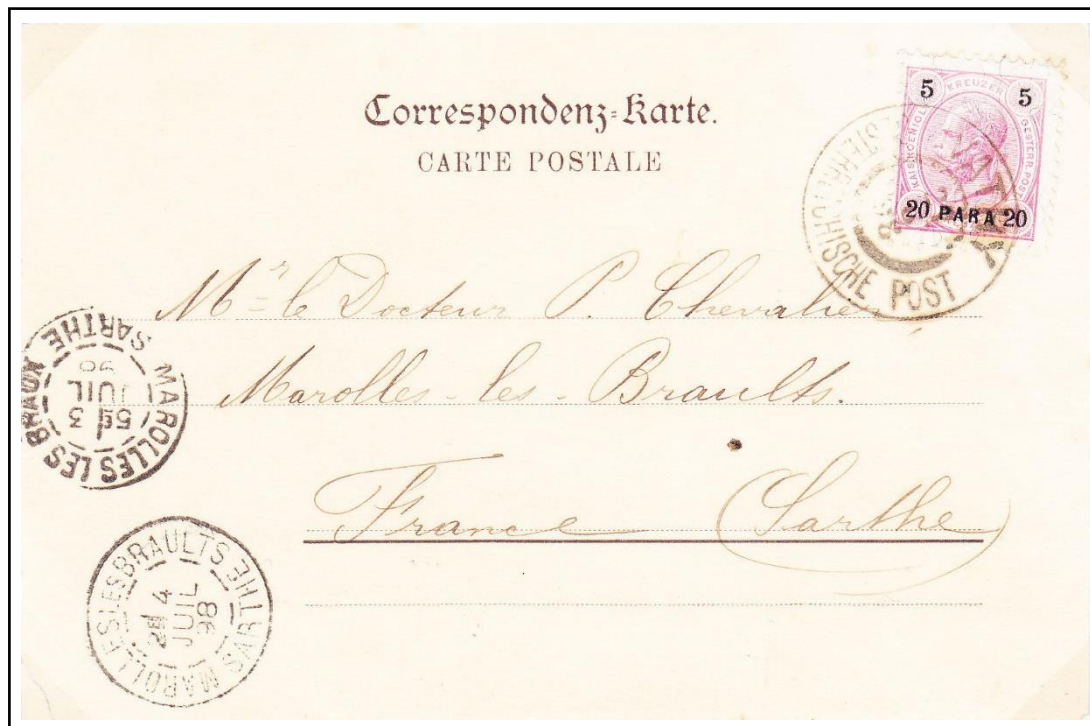 Correspondenz-Karte.
CARTE POSTALE
5 KREUZER 5
KAIS. KOENIGL. OESTERR. POST
20 PARA 20
ÖSTERREICHISCHE POST
Mr le Docteur P. Chevalier
Marolles-les-Braults.
France (Sarthe)
MAROLLES LES BRAUX SARTHE
3
JUIL
98
MAROLLES LES BRAULTS SARTHE
4
JUIL
98